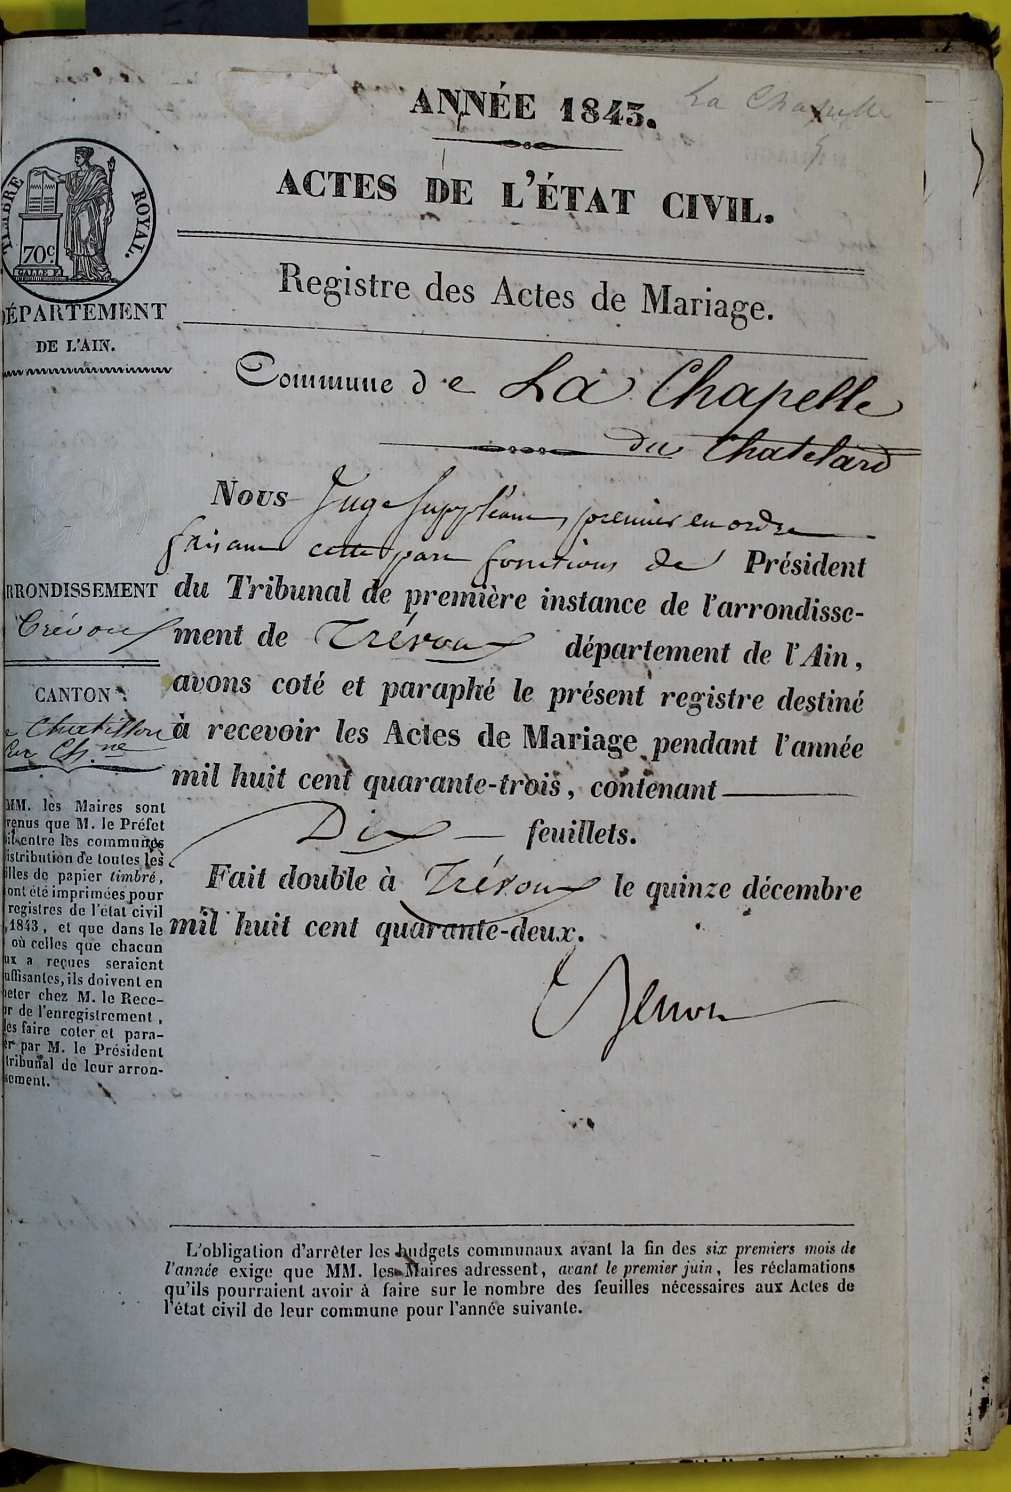 La Chapelle
ANNÉE 1843.
ACTES DE L'ÉTAT CIVIL.
TIMBRE ROYAL.
70c.
Registre des Actes de Mariage.
DÉPARTEMENT
DE L'AIN.
Commune de La Chapelle
du Chatelard
Nous Juge suppléant, premier en ordre
faisant cette part fonctions de Président
du Tribunal de première instance de l'arrondisse-
ment de Trévoux département de l'Ain,
avons coté et paraphé le présent registre destiné
à recevoir les Actes de Mariage pendant l'année
mil huit cent quarante-trois, contenant
Dix feuillets.
Fait double à Trévoux le quinze décembre
mil huit cent quarante-deux.
RRONDISSEMENT
Trévoux
CANTON
Chatillon
sur Ch.ne
MM. les Maires sont
renus que M. le Préfet
entre les communes
istribution de toutes les
illes de papier timbré,
ont été imprimées pour
registres de l'état civil
1843, et que dans le
où celles que chacun
ux a reçues seraient
uffisantes, ils doivent en
heter chez M. le Rece-
r de l'enregistrement,
les faire coter et para-
er par M. le Président
tribunal de leur arron-
sement.
L'obligation d'arrêter les budgets communaux avant la fin des six premiers mois de
l'année exige que MM. les Maires adressent, avant le premier juin, les réclamations
qu'ils pourraient avoir à faire sur le nombre des feuilles nécessaires aux Actes de
l'état civil de leur commune pour l'année suivante.